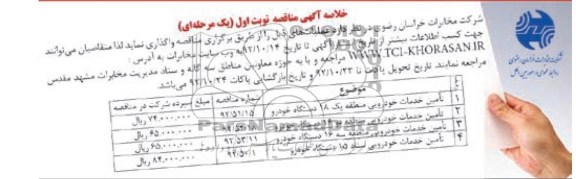 خلاصه آگهی مناقصه نوبت اول (یک مرحله‌ای)
شرکت مخابرات خراسان رضوی در نظر دارد عملیات‌های ذیل را از طریق برگزاری مناقصه واگذاری نماید لذا متقاضیان می‌توانند
جهت کسب اطلاعات بیشتر از آگهی تا تاریخ ۹۲/۱۰/۱۴ به وب سایت مخابرات به آدرس :
WWW.TCI-KHORASAN.IR مراجعه و یا به حوزه معاونین مناطق سه گانه و ستاد مدیریت مخابرات مشهد مقدس
مراجعه نمایند. تاریخ تحویل پاکت تا ۹۲/۱۰/۲۳ و تاریخ بازگشایی پاکات ۹۲/۱۰/۲۴ می‌باشد.
موضوع شماره مناقصه مبلغ سپرده شرکت در مناقصه
۱ تأمین خدمات خودرویی منطقه یک ۱۸ دستگاه خودرو ۹۲/۵۱/۱۵ ۷۴،۰۰۰،۰۰۰ ریال
۲ تأمین خدمات خودرویی دستگاه خودرو ۶۵،۰۰۰،۰۰۰ ریال
۳ تأمین خدمات خودرویی منطقه سه ۱۶ دستگاه خودرو ۹۲/۵۳/۱۱ ۶۵،۰۰۰،۰۰۰ ریال
۴ تأمین خدمات خودرویی ستاد ۱۵ دستگاه خودرو ۸۴،۰۰۰،۰۰۰ ریال